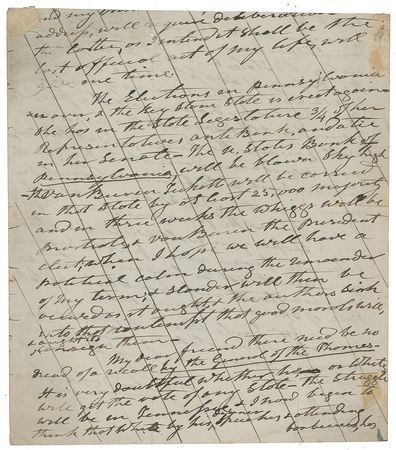 and my
address, will require deliberation
the letter, as I intend it shall be the
last official act of my life, will
give me time.
The Elections in Pennsylvania
are over, & the Key Stone State is erect again
She has in the State Legislature 3/4 of her
Representatives anti Bank, and a tie
in her Senate — The U. States Bank of
Pennsylvania, will be blown sky high
the Van Buren Tickett will be carried
in that State by at least 25,000 majority
and in three weeks the Whiggs will be
prostrate & Van Buren the president
elect, when I hope we will have a
political calm during the remainder
of my term, & slander will then be
viewed as it ought & the authors sink
into that contempt that good morals will,
& ought to
consign them —
My dear friend there need be no
dread of a recall by the Council of the
It is very doubtful whether he or White
will get the vote of any State — the struggle
will be in Tennessee & I now begin to
think that White by his speeches & attending
barbecues has